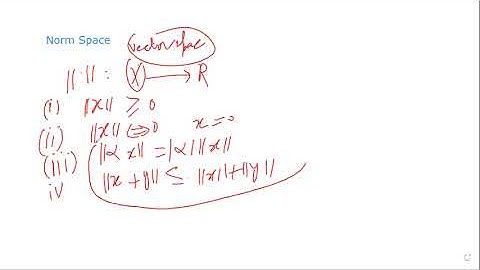 Norm Space vector space
||·|| : X → R
(i) ||x|| ≥ 0
(ii) ||x|| = 0 x = 0
(iii) ||αx|| = |α| ||x||
iv ||x + y|| ≤ ||x|| + ||y||